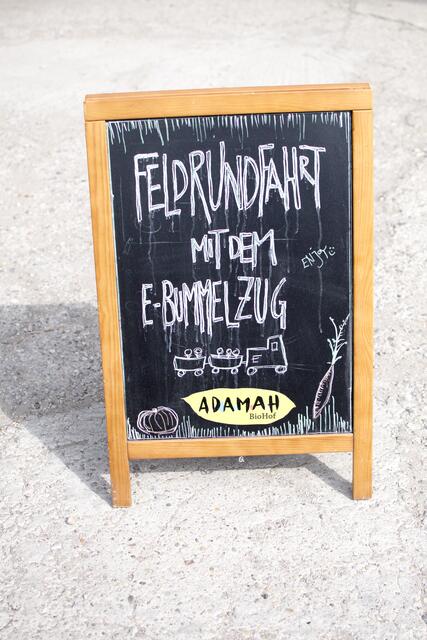 FELDRUNDFAHRT
MIT DEM
ENJOY
E-BUMMELZUG
E
ADAMAH
BioHof